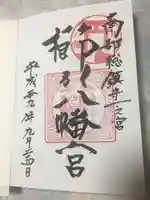 南部総鎮守一之宮
櫛引八幡宮
平成廿九年九月